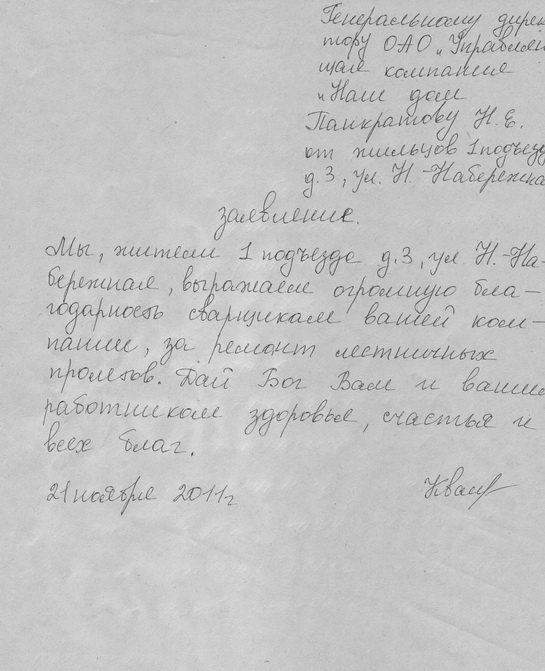 Генеральному дирек
тору ОАО „Управляю
щая компания
„Наш дом
Панкратову Н.Е.
от жильцов 1 подъезд
д.3, ул. Н-Набережна
заявление.
Мы, жители 1 подъезда д.3, ул Н.-На-
бережная, выражаем огромную бла-
годарность сварщикам вашей ком-
пании, за ремонт лестничных
пролетов. Дай Бог Вам и вашим
работникам здоровья, счастья и
всех благ.
21 ноября 2011г